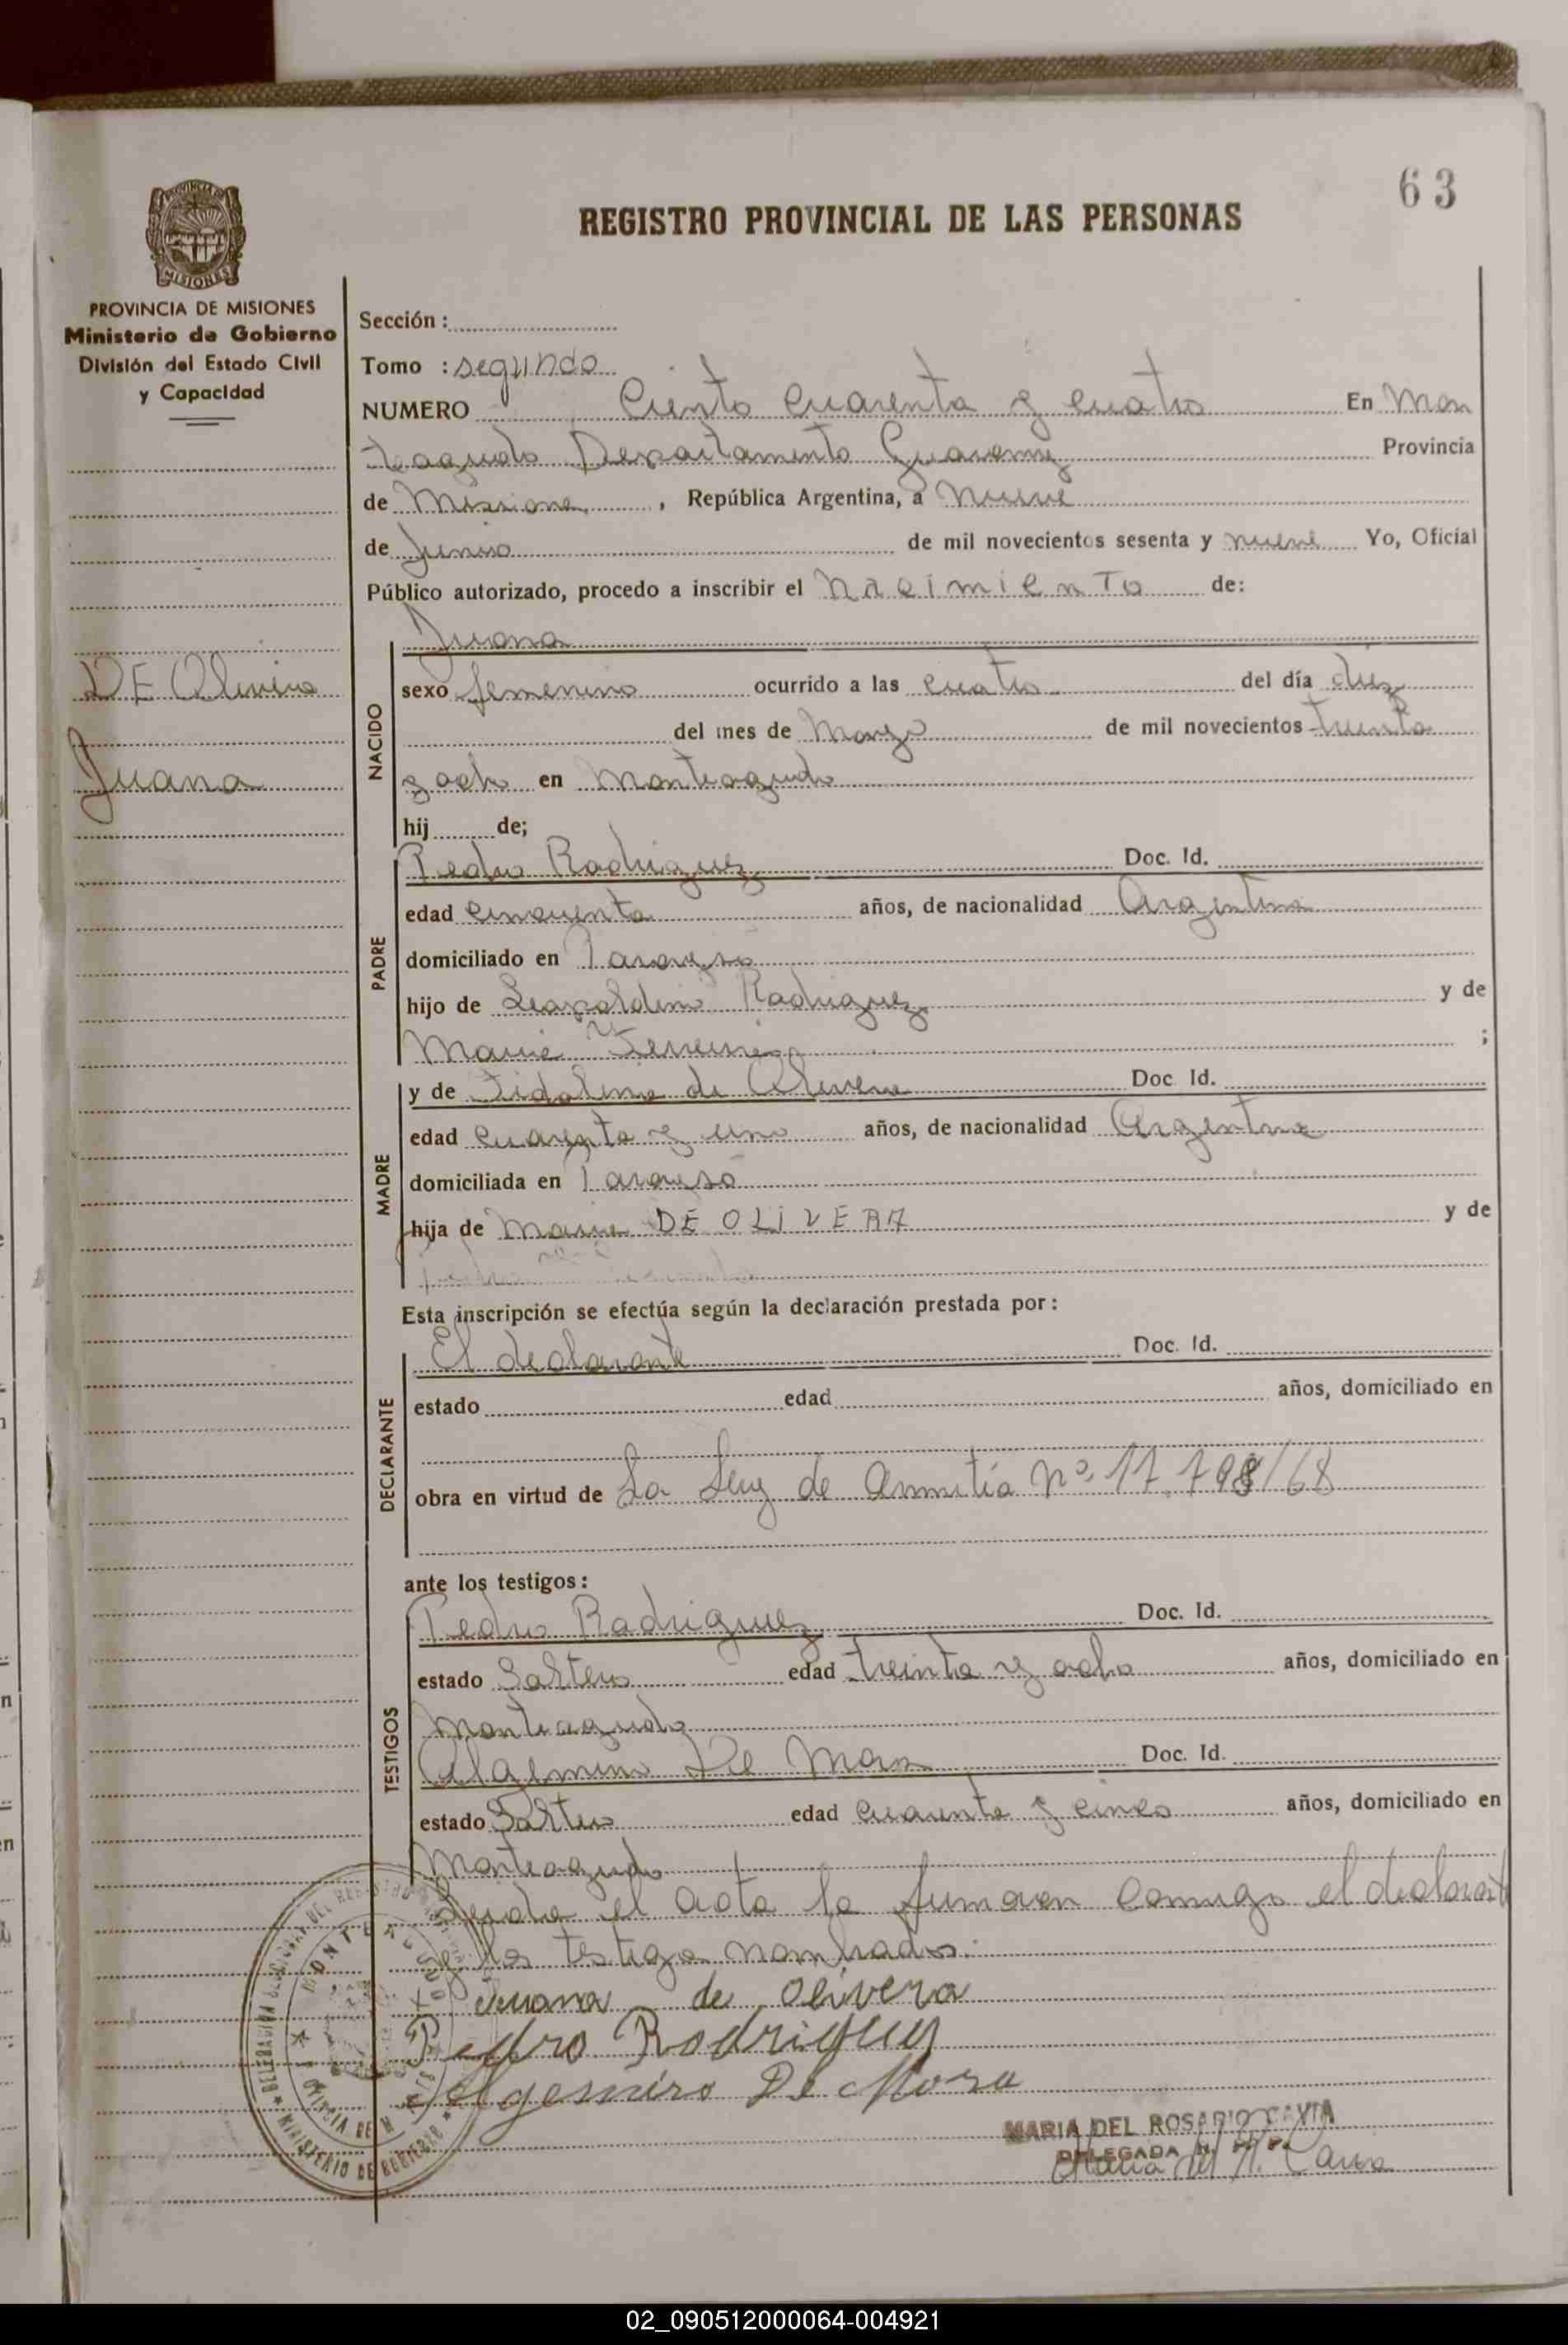 63
REGISTRO PROVINCIAL DE LAS PERSONAS
PROVINCIA DE
MISIONES
PROVINCIA DE MISIONES
Ministerio de Gobierno
División del Estado Civil
y Capacidad
DE Olivera
Juana
Sección :
Tomo : segundo
NUMERO Ciento Cuarenta y cuatro En Mon
teagudo Departamento Guarany Provincia
de Misiones, República Argentina, a nueve
de Junio de mil novecientos sesenta y nueve Yo, Oficial
Público autorizado, procedo a inscribir el nacimiento de:
Juana
NACIDO
sexo femenino ocurrido a las cuatro del día diez
del mes de Marzo de mil novecientos treinta
y ocho en Monteagudo
hij de;
PADRE
Pedro Rodriguez Doc. Id.
edad cincuenta años, de nacionalidad Argentina
domiciliado en Paraiso
hijo de Leopoldino Rodriguez y de
Maria Ferreira ;
MADRE
y de Fidalina de Olivera Doc Id.
edad cuarenta y uno años, de nacionalidad Argentina
domiciliada en Paraiso
hija de Maria DE OLIVERA y de
Esta inscripción se efectúa según la declaración prestada por:
DECLARANTE
El declarante Doc. Id.
estado edad años, domiciliado en
obra en virtud de La Ley de Amnitía Nº 17.798/68
ante los testigos:
TESTIGOS
Pedro Rodriguez Doc. Id.
estado Soltero edad treinta y ocho años, domiciliado en
Monteagudo
De Mora Doc. Id.
estado Soltero edad cuarenta y cinco años, domiciliado en
Monteagudo
Leida el acta la firman conmigo el declarante
y los testigos nombrados.
Juana de Olivera
Pedro Rodriguez
De Mora
MONTEAGUDO
MINISTERIO DE GOBIERNO
MARIA DEL ROSARIO CAVIA
DELEGADA
Maria del R. Cavia
02_090512000064-004921